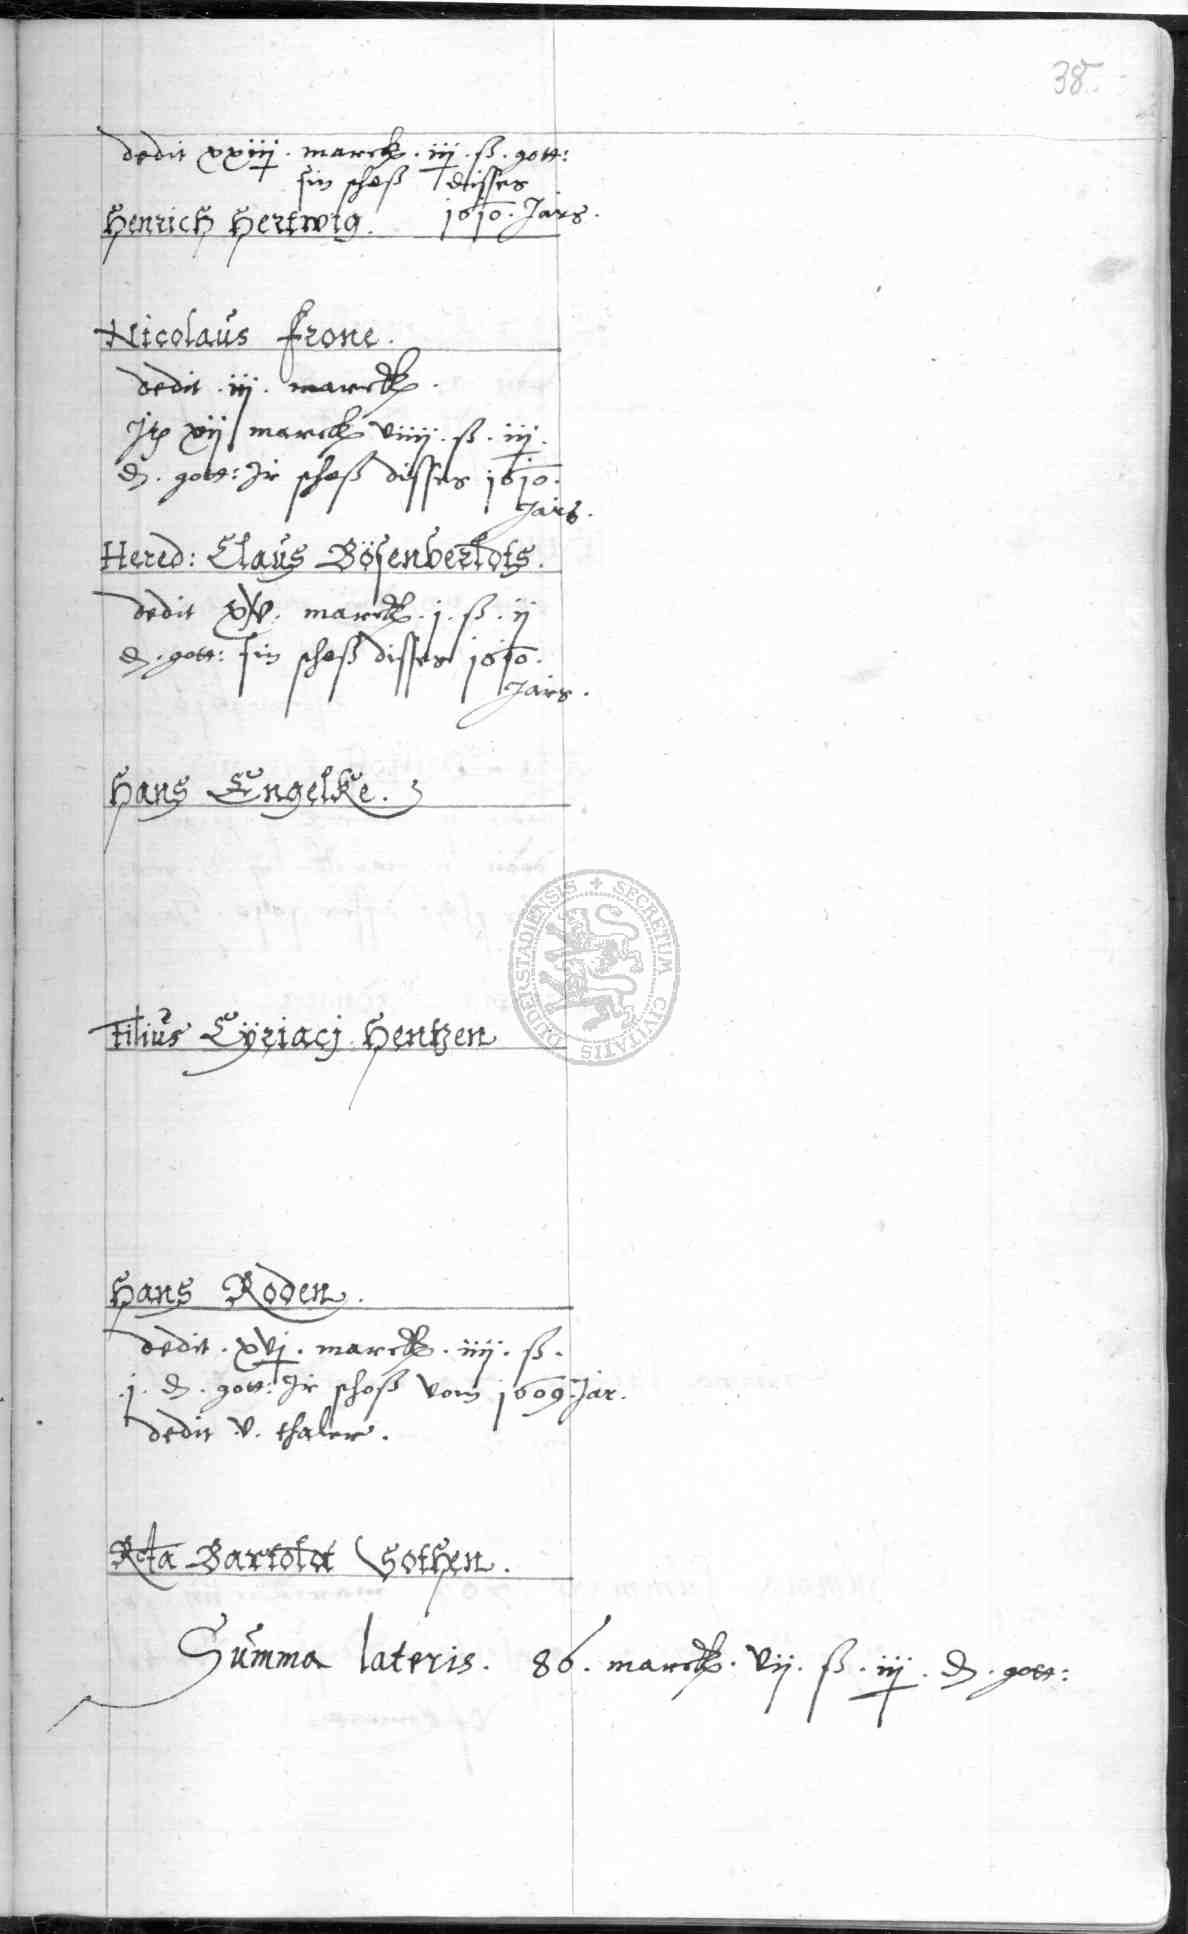 38
dedit xxiij. marck. iij. ß. gott:
sin schoß disses
1610. Jars.
Henrich Hertwig.
Nicolaus Frone.
dedit. iij. marck.
Jt xij marck viiij. ß. iij.
d. gott: Jr schoß disses 1610.
Jars.
Hered: Claus Bösenbertols.
dedit xv. marck. j. ß. ij
d. gott: sin schoß disses 1610.
Jars.
Hans Engelke.
Filius Cÿriacj Hentzen
SECRETUM CIVITATIS DUDERSTADIENSIS
Hans Roden.
dedit. xvj. marck. iiij. ß.
j. d. gott: Jr schoß vom 1609. Jar.
dedit v. thaler.
Rcta Bartold Gothen.
Summa lateris. 86. marck. vij. ß. iij. d. gott: